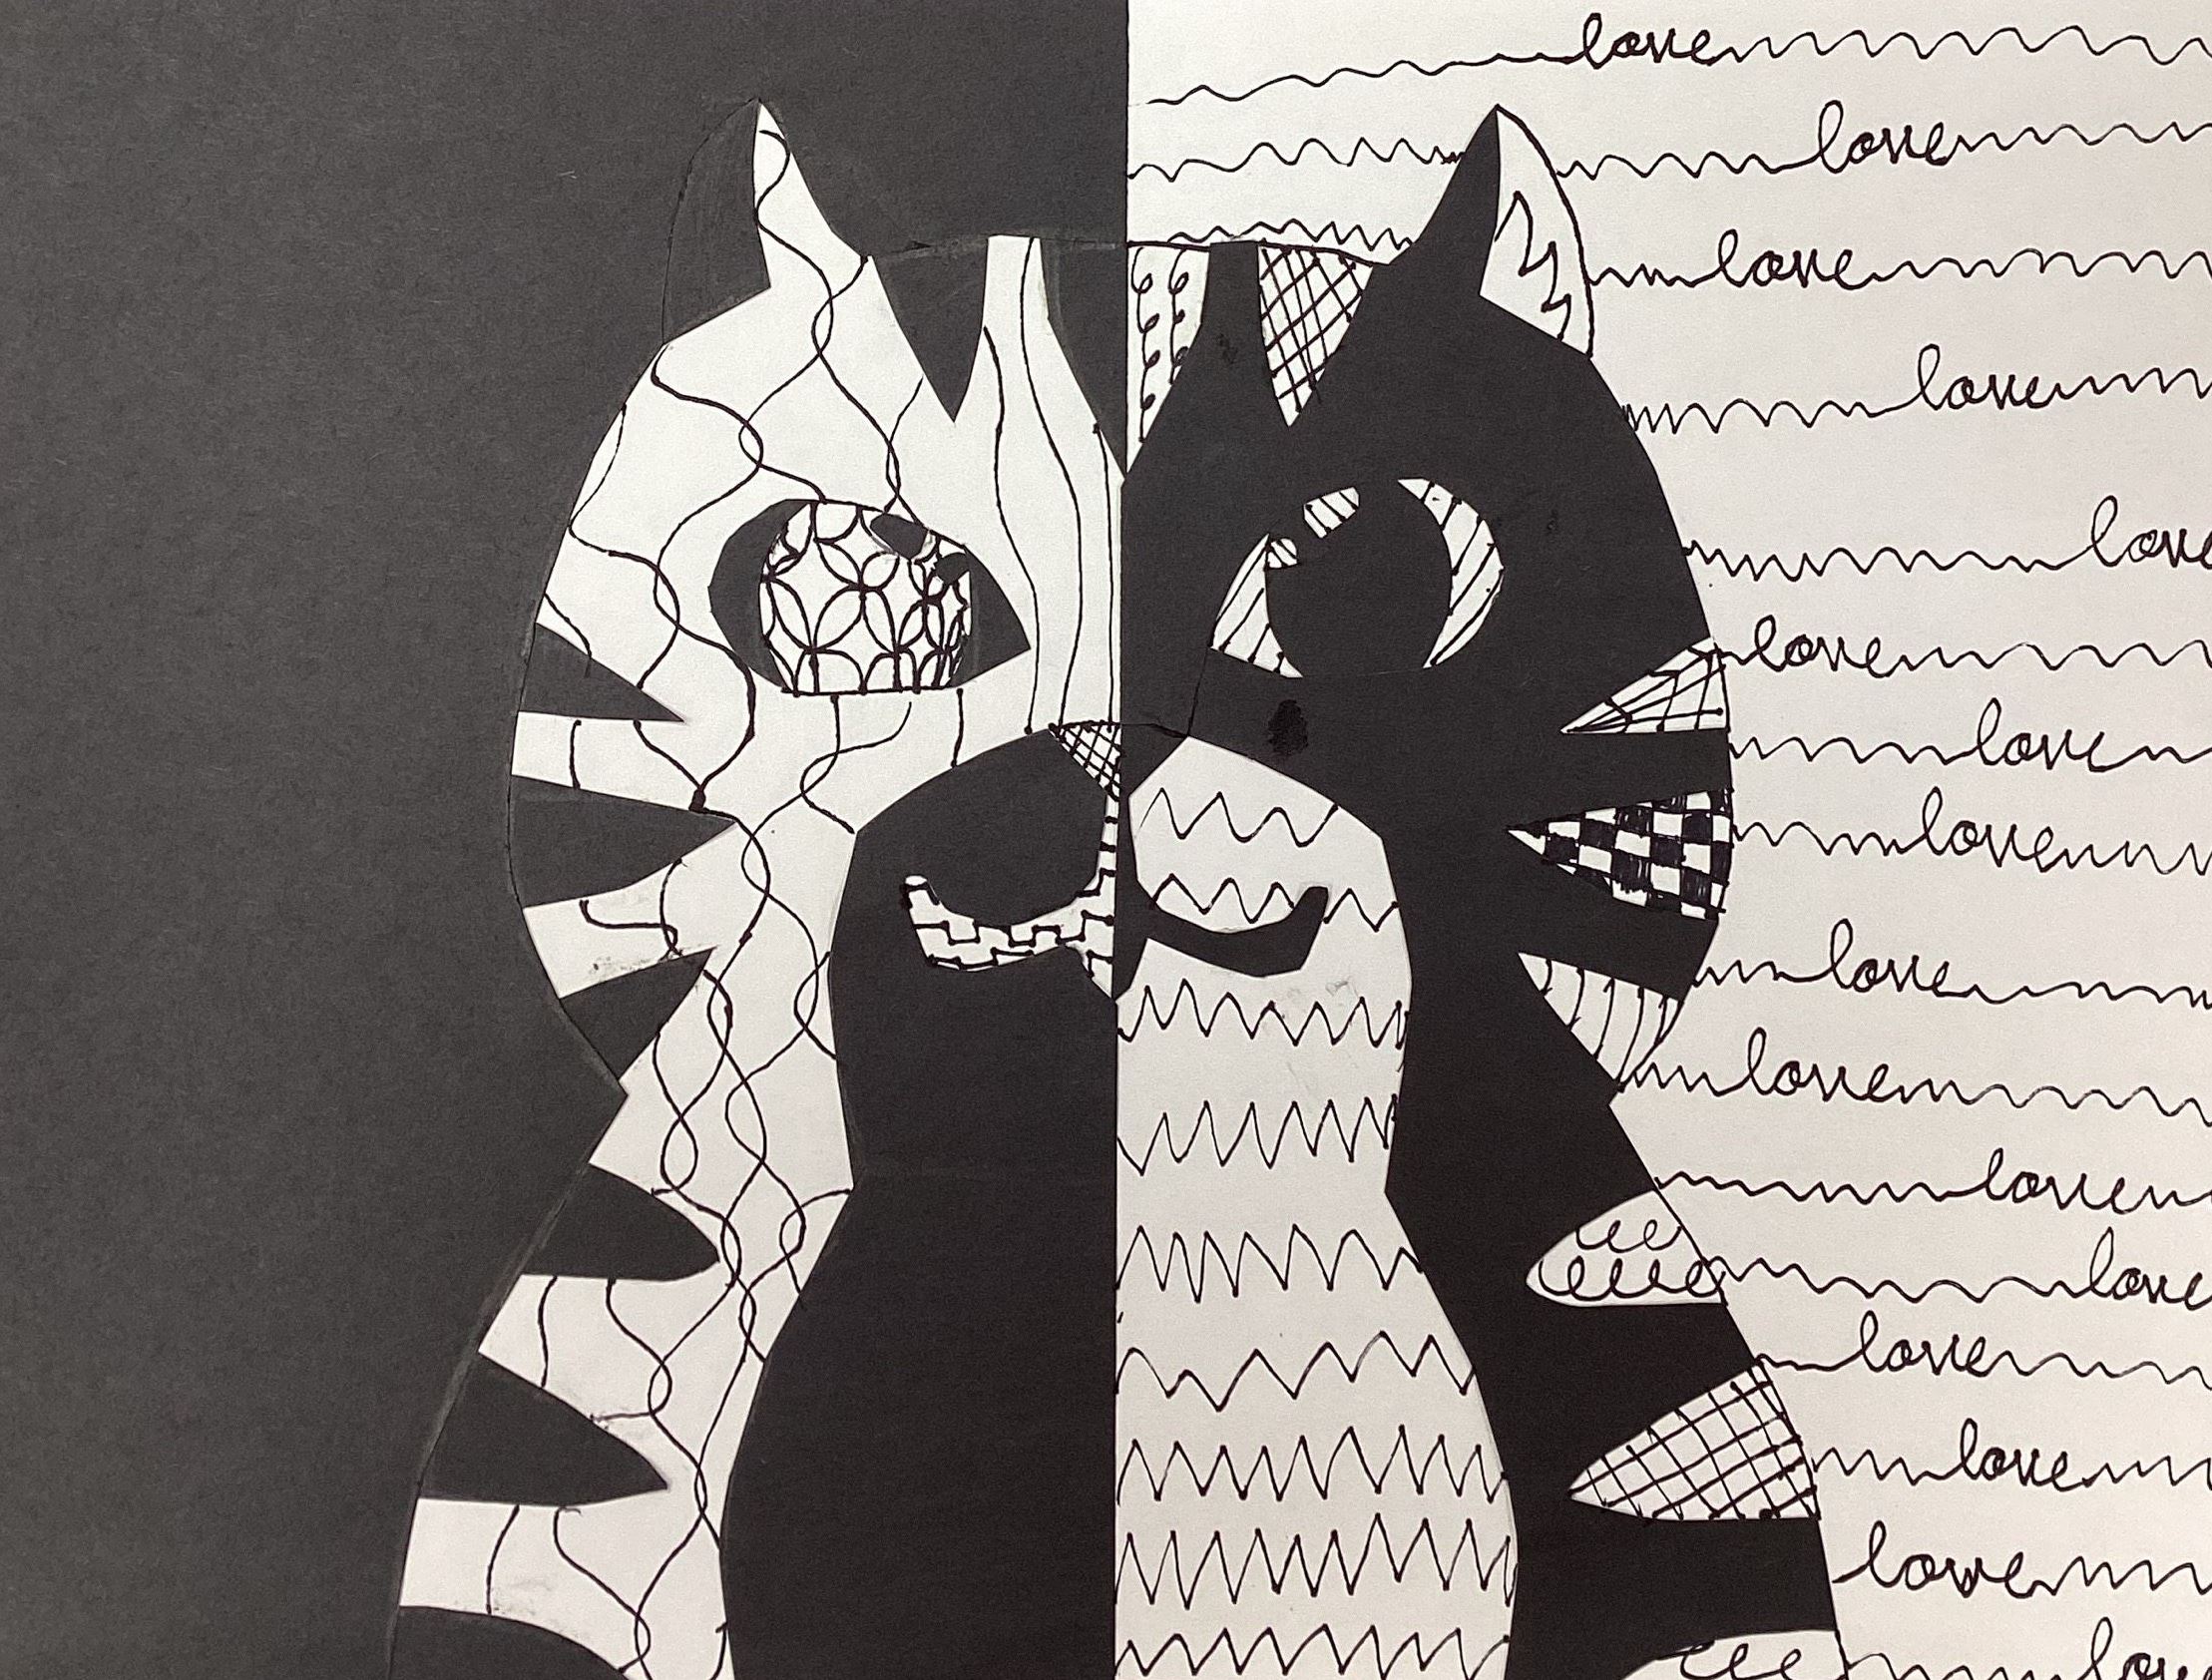 love
love
love
love
love
love
love
love
love
love
love
love
love
love
love
lov